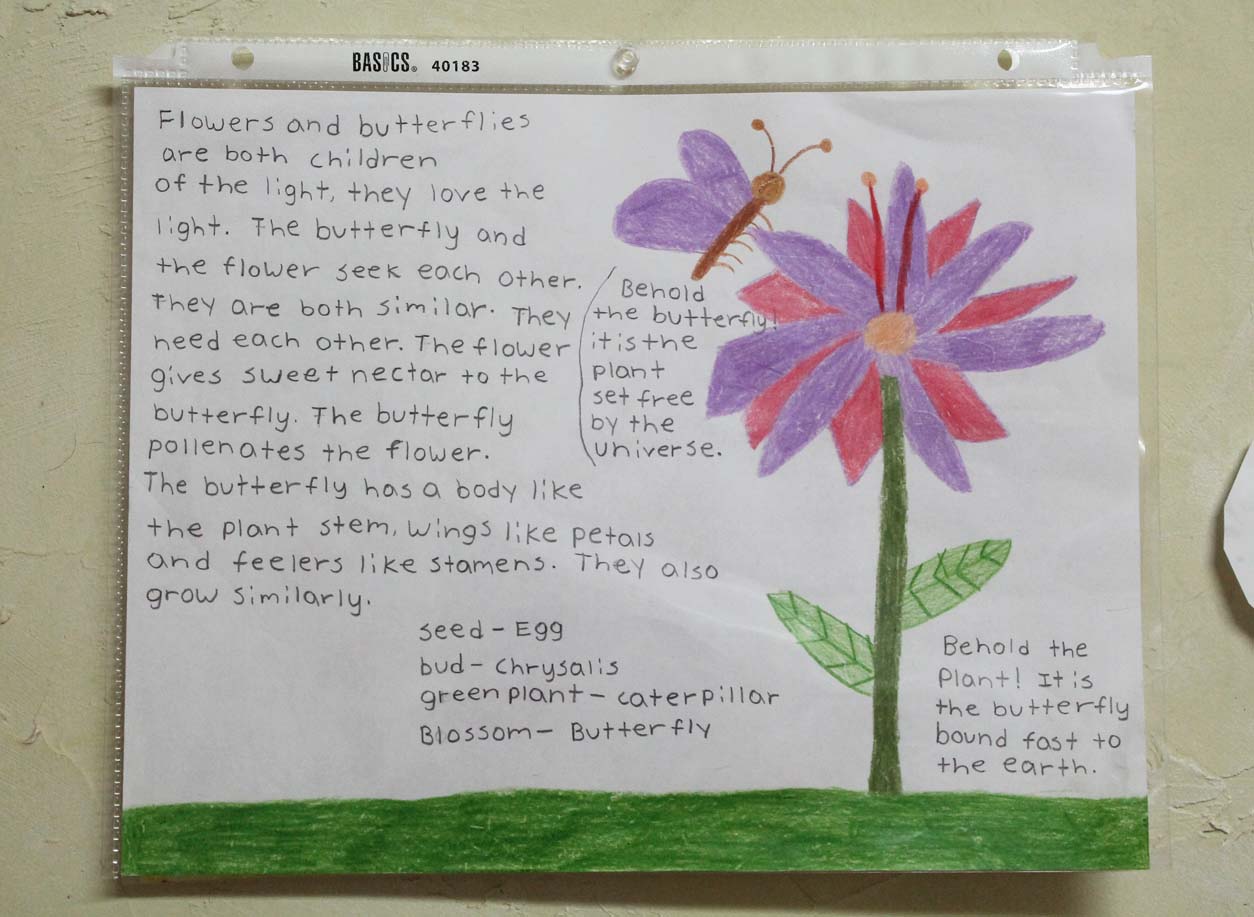 BASICS® 40183
Flowers and butterflies
are both children
of the light, they love the
light. The butterfly and
the flower seek each other.
They are both similar. They
need each other. The flower
gives sweet nectar to the
butterfly. The butterfly
pollenates the flower.
The butterfly has a body like
the plant stem, wings like petals
and feelers like stamens. They also
grow similarly.
seed - Egg
bud - Chrysalis
green plant - caterpillar
Blossom - Butterfly
Behold
the butterfly!
it is the
plant
set free
by the
universe.
Behold the
Plant! It is
the butterfly
bound fast to
the earth.